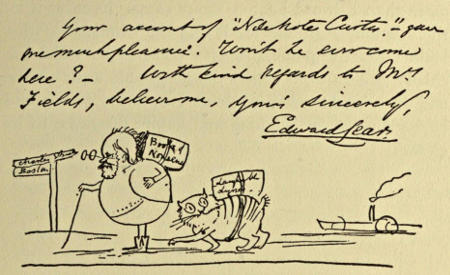 Your account of "Nile Notes Curtis" - gave
me much pleasure. Won't he ever come
here? - With kind regards to Mrs
Fields, believe me, Yours sincerely,
Edward Lear.
Charles Street
Boston
Book of
Nonsense
Laughable
Lyrics